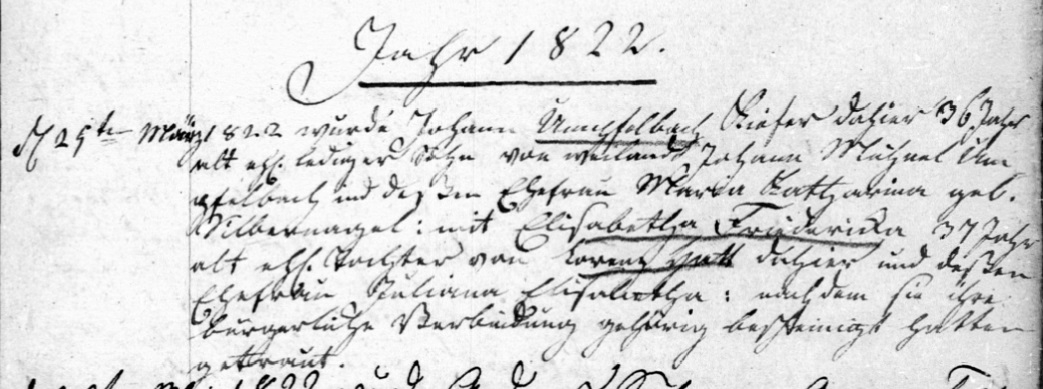 Jahr 1822.
D 25ten März 1822 wurde Johann Umpfelbach Kiefer dahier 36 Jahr
alt ehl. lediger Sohn von weiland Johann Michael Um
pfelbach und deßen Ehefrau Maria Katharina geb.
Silbernagel: mit Elisabetha Friedericka 37 Jahr
alt ehl. Tochter von Lorenz dahier und deßen
Ehefrau Juliana Elisabetha: nachdem sie ihre
bürgerliche Verbindung gehörig bescheinigt hatten
getraut.
1822